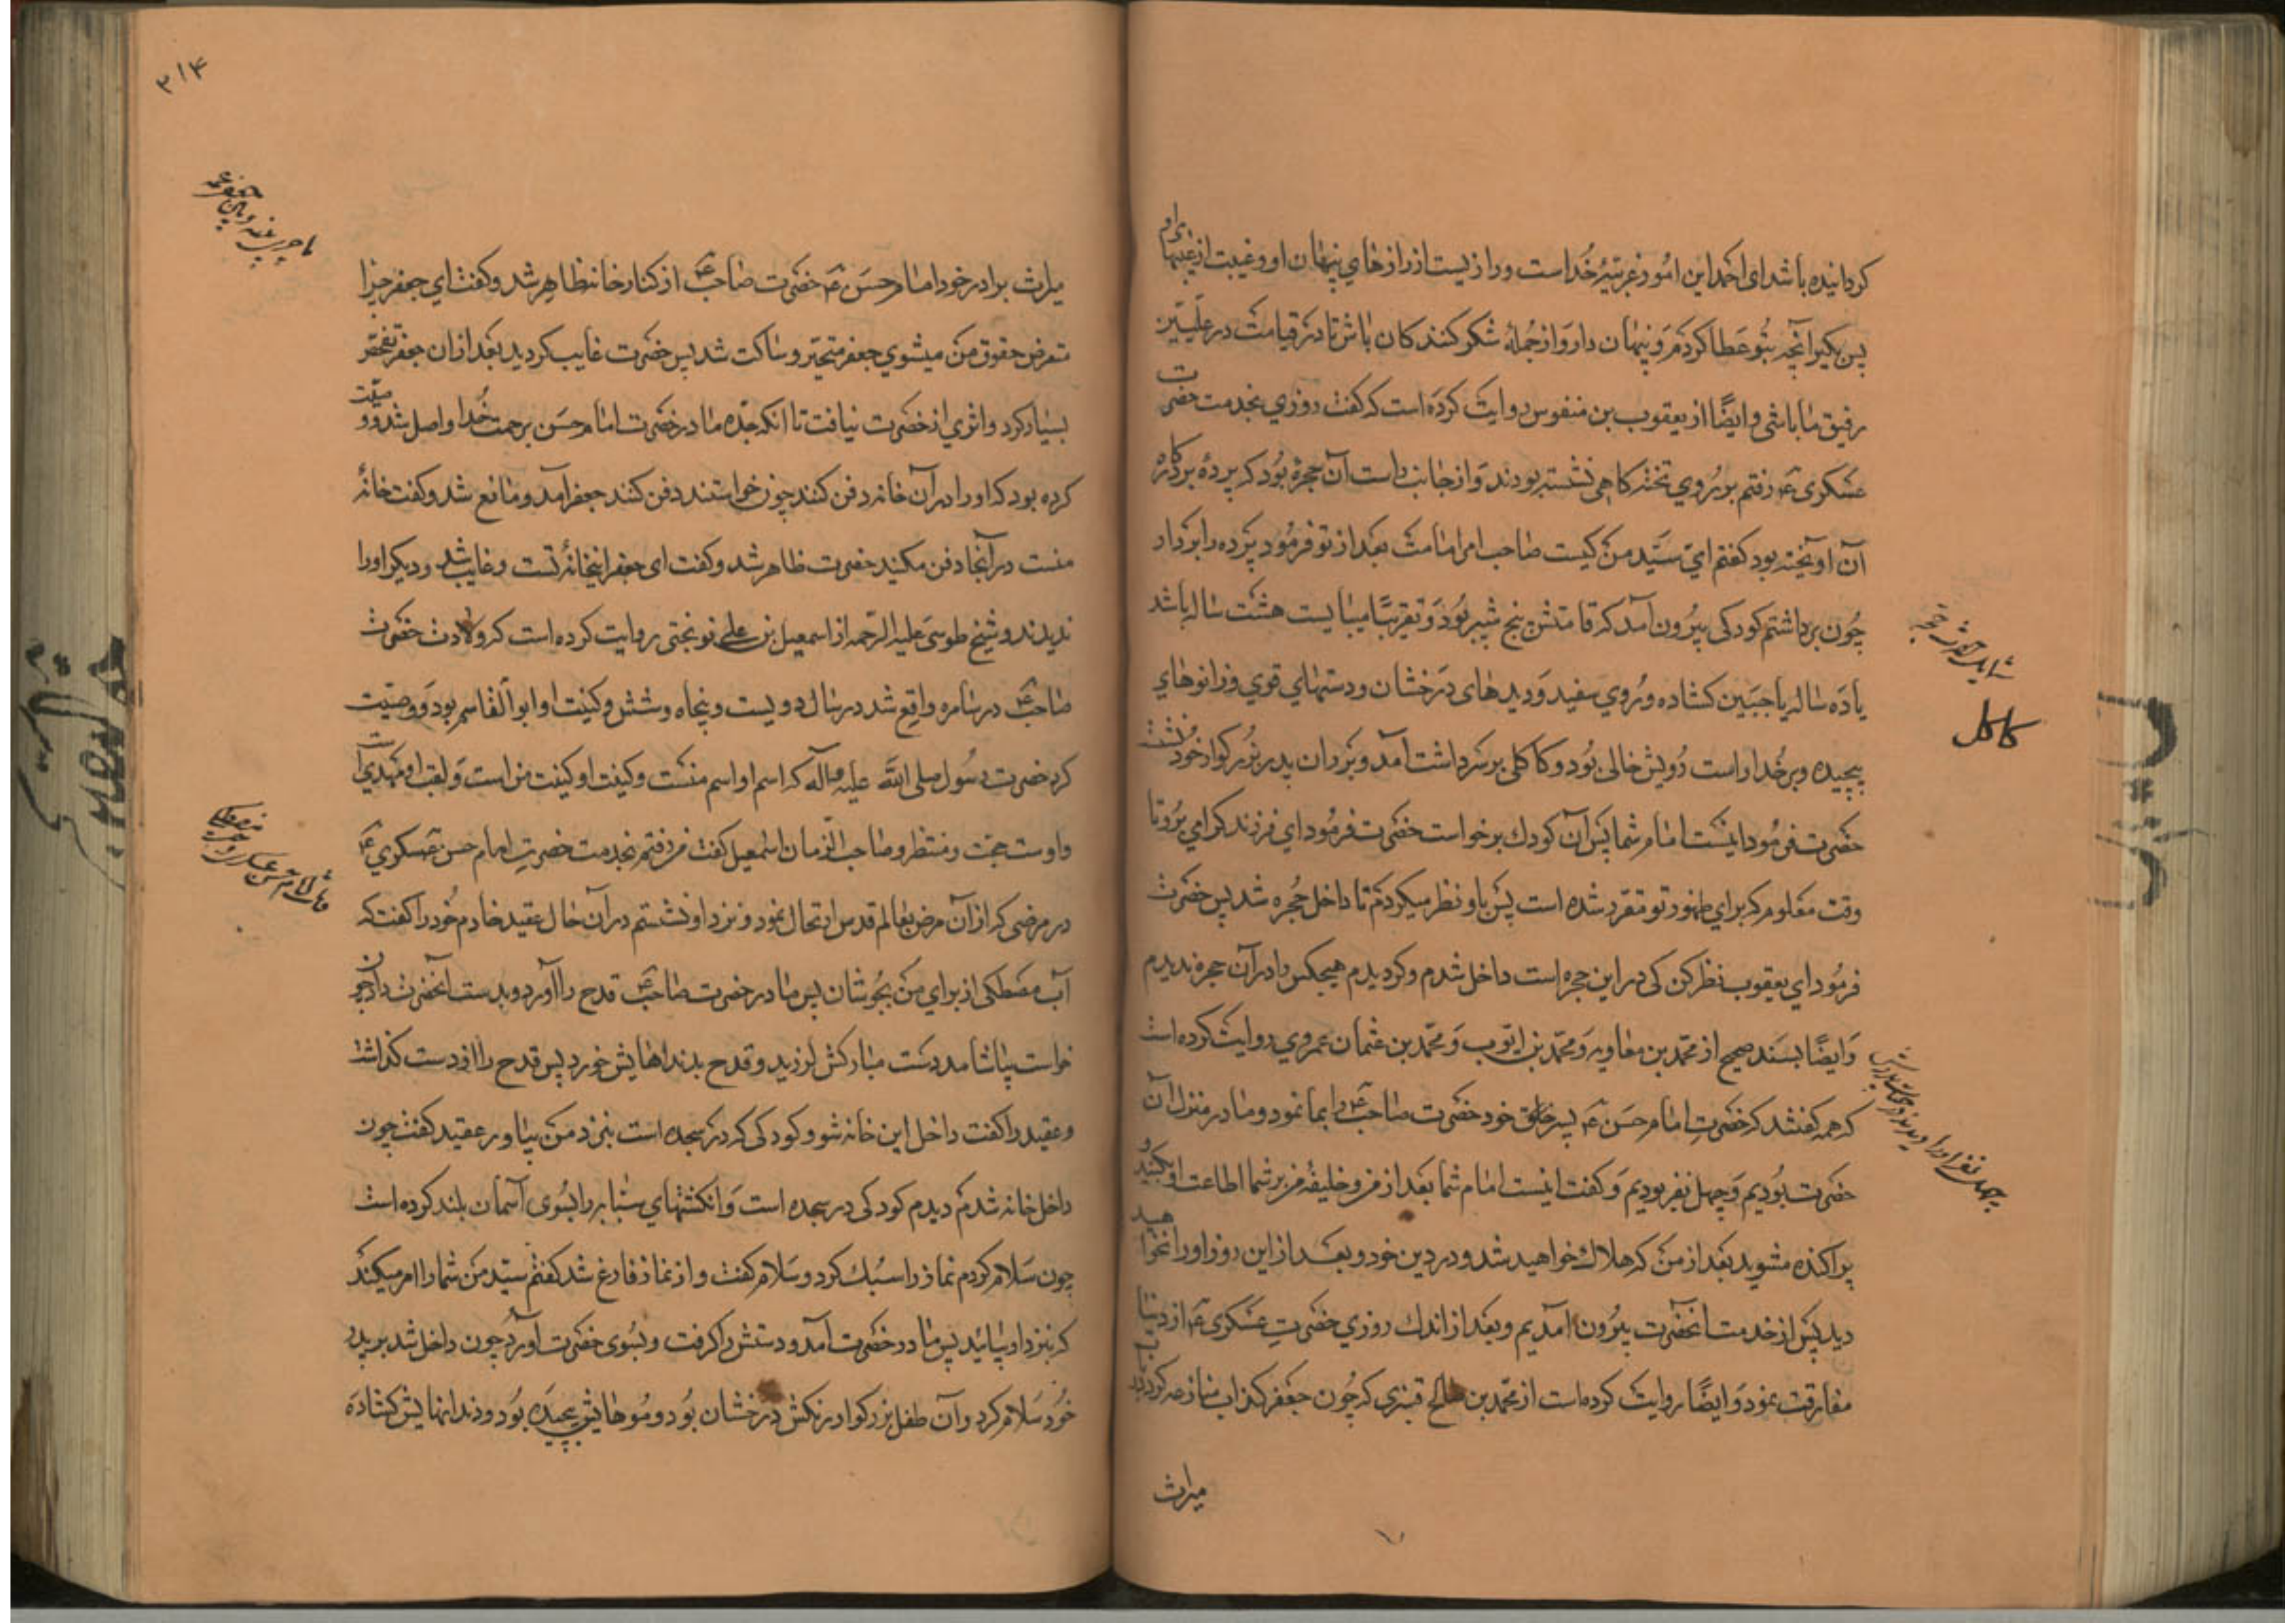 گردانیده باشد ای احمد این امور غریبهٔ خداست و رازیست از رازهای پنهان او و غیبت از غیبهای او
پس بگیر آنچه بتو عطا کردم و پنهان دار و از جملهٔ شکر کنندکان باش تا در قیامت در علیین
رفیق ما باشی و ایضًا از یعقوب بن منفوس روایت کرده است که گفت روزی بخدمت حضرت
عسکری ع رفتم بر روی تختگاهی نشسته بودند و از جانب راست آن حجرهٔ بود که پردهٔ بر درگاه
آن آویخته بود گفتم ای سید من کیست صاحب امر امامت بعد از تو فرمود پرده را بردار
چون برداشتم کودکی بیرون آمد که قامتش پنج شبر بود و تقریبًا میبایست هشت ساله باشد
یا ده ساله با جبین کشاده و روی سفید و دیدهای درخشان و دستهای قوی و زانوهای
پیچیده و بر خد راست رویش خالی بود و کاکلی بر سر داشت آمد و بر ران پدر بزرگوار خود نشست
حضرت فرمود اینست امام شما پس آن کودک برخواست حضرت فرمود ای فرزند گرامی برو تا
وقت معلوم که برای ظهور تو مقرر شده است پس باو نظر میکردم تا داخل حجره شد پس حضرت
فرمود ای یعقوب نظر کن کی در این حجره است داخل شدم و گردیدم هیچکس را در آن حجره ندیدم
و ایضًا بسند صحیح از محمد بن معاویه و محمد بن ایوب و محمد بن عثمان عمروی روایت کرده است
که همه گفتند که حضرت امام حسن ع پسر خود حضرت صاحب ع را بما نمود و ما در منزل آن
حضرت بودیم و چهل نفر بودیم و گفت اینست امام شما بعد از من و خلیفهٔ من بر شما اطاعت او بکنید و
پراکنده مشوید بعد از من که هلاک خواهید شد و در دین خود و بعد از این روز او را نخواهید
دید پس از خدمت آنحضرت بیرون آمدیم و بعد از اندک روزی حضرت عسکری ع از دنیا
مفارقت نمود و ایضًا روایت کرده است از محمد بن صالح قنبری که چون جعفر کذاب منازعه کرد در
میراث
شاید کردش خجسته
کاکل
چهل نفر او را دیدند در حیات پدرش
۳۱۴
میراث برادر خود امام حسن ع حضرت صاحب ع از کنار خانه ظاهر شد و گفت ای جعفر چرا
متعرض حقوق من میشوی جعفر متحیر و ساکت شد پس حضرت غایب گردید بعد از آن جعفر تفحص
بسیار کرد و اثری از حضرت نیافت تا آنکه جده مادر حضرت امام حسن برحمت خدا واصل شد و وصیت
کرده بود که او را در آن خانه دفن کنند چون خواستند دفن کنند جعفر آمد و مانع شد و گفت خانهٔ
منست در آنجا دفن مکنید حضرت ظاهر شد و گفت ای جعفر اینخانهٔ تست و غایب شد و دیگر او را
ندیدند و شیخ طوسی علیه الرحمه از اسمعیل بن علی نوبختی روایت کرده است که ولادت حضرت
صاحب ع در سامره واقع شد در سال دویست و پنجاه و شش و کنیت او ابو القاسم بود و وصیت
کرد حضرت رسول صلی الله علیه و آله که اسم او اسم منست و کنیت او کنیت من است و لقب او مهدیست
و اوست حجت و منتظر و صاحب الزمان اسمعیل گفت من رفتم بخدمت حضرت امام حسن عسکری ع
در مرضی که از آن مرض بعالم قدس ارتحال نمود و نزد او نشستم در آن حال عقید خادم خود را گفت که
آب مصطکی از برای من بجوشان پس مادر حضرت صاحب ع قدح را آورد و بدست آنحضرت داد چون
خواست بیاشامد دست مبارکش لرزید و قدح بدندانهایش خورد پس قدح را از دست گذاشت
و عقید را گفت داخل این خانه شو و کودکی که در سجده است بنزد من بیاور عقید گفت چون
داخل خانه شدم دیدم کودکی در سجده است و انگشتهای سبابه را بسوی آسمان بلند کرده است
چون سلام کردم نماز را سبک کرد و سلام گفت و از نماز فارغ شد گفتم سید من شما را امر میکند
که بنزد او بیائید پس مادر حضرت آمد و دستش را گرفت و بسوی حضرت آورد چون داخل شد بر پدر
خود سلام کرد و آن طفل بزرگوار رنگش درخشان بود و موهایش پیچیده بود و دندانهایش کشاده